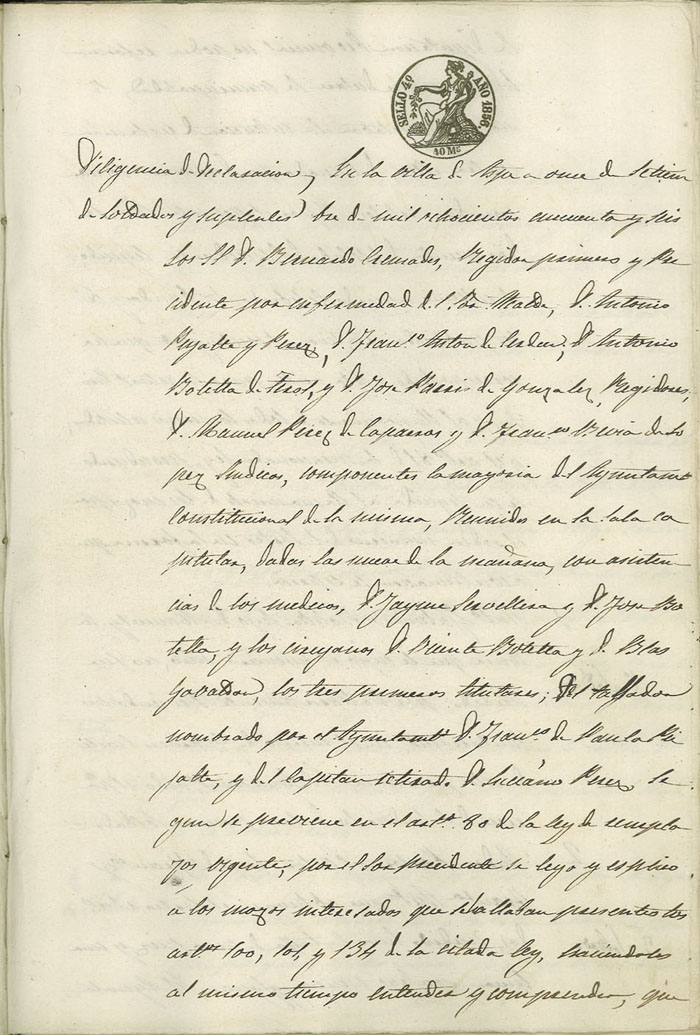 SELLO 4º AÑO 1856.
40 Ms
Diligencia de declaracion, En la villa de a once de Setiem
de Soldados y suplentes bre de mil ochocientos cincuenta y seis
los SS. D. Bernardo Cremades, Regidor primero y Pre
cidente por enfermedad del Sor. Alcalde, D. Antonio
y Perez, D. Franco. Anton de D. Antonio
Botella de y D. Jose de Gonzalez, Regidores,
D. Manuel Perez de Caparros y D. Franco. de Lo
pez Sindicos, componentes la mayoria del Ayuntamto.
Constitucional de la misma, Reunidos en la Sala ca
pitular, dadas las nueve de la mañana, con asisten
cias de los medicos, D. Jayme y D. Jose Bo
tella, y los cirujanos D. Vicente Botella y D. Blas
los tres primeros titulares; del tallador
nombrado por el Ayuntamto. D. Franco. de Paula
y del Capitan retirado D. Luciano Perez, Se
gun se previene en el arto. 80 de la ley de reempla
zos vigente, por el Sor. presidente se leyo y esplico
á los mozos interesados que se hallaban presentes los
artos. 100, 101, y 134 de la citada ley, haciendoles
al mismo tiempo entender y comprender, que